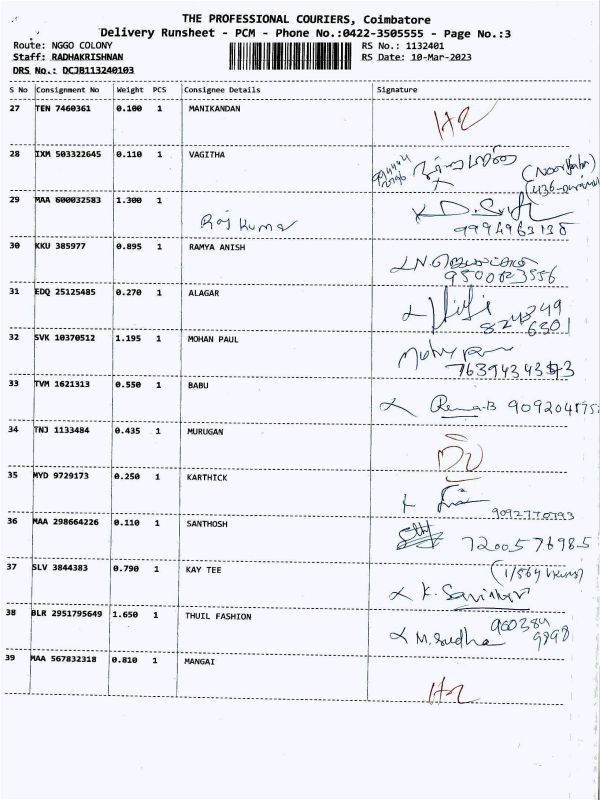 THE PROFESSIONAL COURIERS, Coimbatore
Delivery Runsheet - PCM - Phone No.:0422-3505555 - Page No.:3
Route: NGGO COLONY RS No.: 1132401
Staff: RADHAKRISHNAN RS Date: 10-Mar-2023
DRS No.: DCJB113240103
S No Consignment No Weight PCS Consignee Details Signature
27 TEN 7460361 0.100 1 MANIKANDAN
28 IXM 503322645 0.110 1 VAGITHA
29 MAA 600032583 1.300 1
Raj kumar
9994963138
30 KKU 385977 0.895 1 RAMYA ANISH
31 EDQ 25125485 0.270 1 ALAGAR
32 SVK 10370512 1.195 1 MOHAN PAUL
33 TVM 1621313 0.550 1 BABU
34 TNJ 1133484 0.435 1 MURUGAN
35 MYD 9729173 0.250 1 KARTHICK
9092770793
36 MAA 298664226 0.110 1 SANTHOSH
7200576985
37 SLV 3844383 0.790 1 KAY TEE
38 BLR 2951795649 1.650 1 THUIL FASHION
M.Sudha
39 MAA 567832318 0.810 1 MANGAI